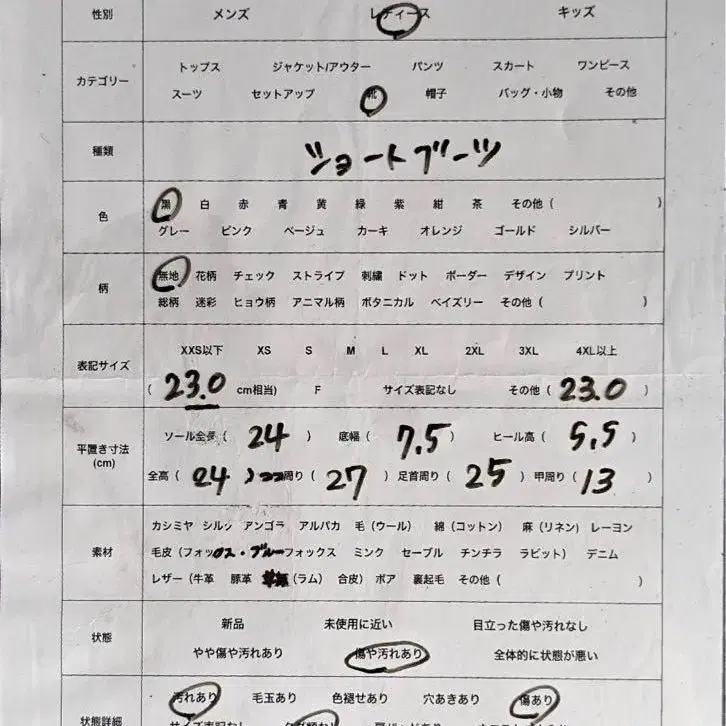 性別 メンズ レディース キッズ
カテゴリー トップス ジャケット/アウター パンツ スカート ワンピース
スーツ セットアップ 靴 帽子 バッグ・小物 その他
種類 ショートブーツ
色 黒 白 赤 青 黄 緑 紫 紺 茶 その他 ( )
グレー ピンク ベージュ カーキ オレンジ ゴールド シルバー
柄 無地 花柄 チェック ストライプ 刺繍 ドット ボーダー デザイン プリント
総柄 迷彩 ヒョウ柄 アニマル柄 ボタニカル ペイズリー その他 ( )
表記サイズ XXS以下 XS S M L XL 2XL 3XL 4XL以上
( 23.0 cm相当) F サイズ表記なし その他 ( 23.0 )
平置き寸法 (cm) ソール全長 ( 24 ) 底幅 ( 7.5 ) ヒール高 ( 5.5 )
全高 ( 24 ) 周り ( 27 ) 足首周り ( 25 ) 甲周り ( 13 )
素材 カシミヤ シルク アンゴラ アルパカ 毛 (ウール) 綿 (コットン) 麻 (リネン) レーヨン
毛皮 (フォックス・ブルーフォックス ミンク セーブル チンチラ ラビット) デニム
レザー (牛革 豚革 (ラム) 合皮) ボア 裏起毛 その他 ( )
状態 新品 未使用に近い 目立った傷や汚れなし
やや傷や汚れあり 傷や汚れあり 全体的に状態が悪い
状態詳細 汚れあり 毛玉あり 色褪せあり 穴あきあり 傷あり
サイズ表記なし